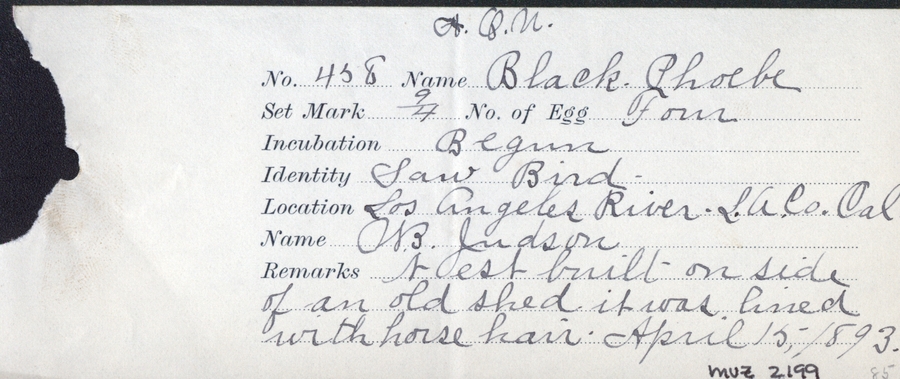 A. O. U.
No. 458 Name Black. Phoebe
Set Mark 9/4 No. of Egg Four
Incubation Begun
Identity Saw Bird -
Location Los Angeles River. L.A.Co. Cal
Name W.B. Judson
Remarks Nest built on side
of an old shed it was lined
with horse hair. April 15, 1893.
MVZ 2199 85